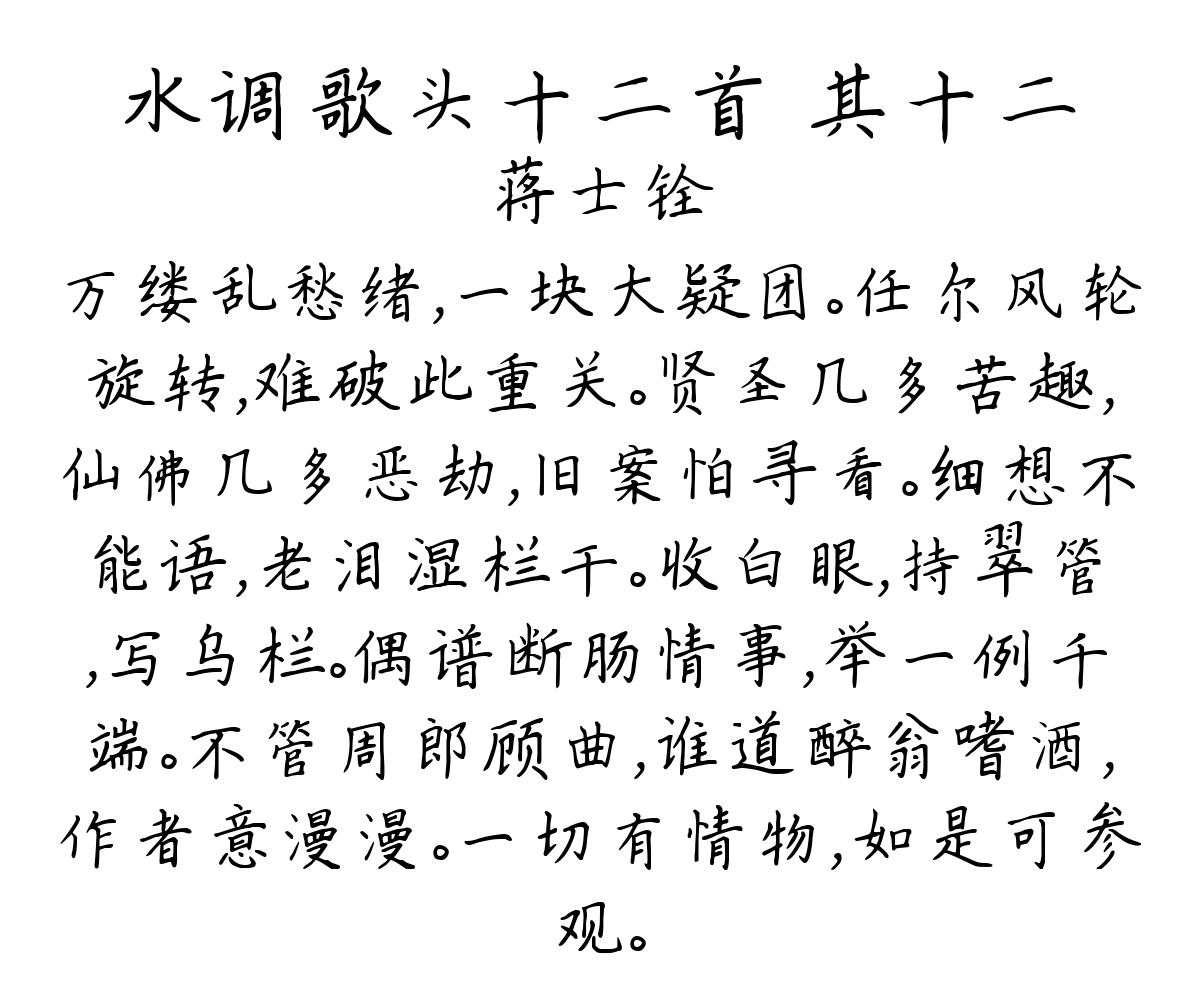 水调歌头十二首 其十二
蒋士铨
万缕乱愁绪,一块大疑团。任尔风轮
旋转,难破此重关。贤圣几多苦趣,
仙佛几多恶劫,旧案怕寻看。细想不
能语,老泪湿栏干。收白眼,持翠管
,写乌栏。偶谱断肠情事,举一例千
端。不管周郎顾曲,谁道醉翁嗜酒,
作者意漫漫。一切有情物,如是可参
观。